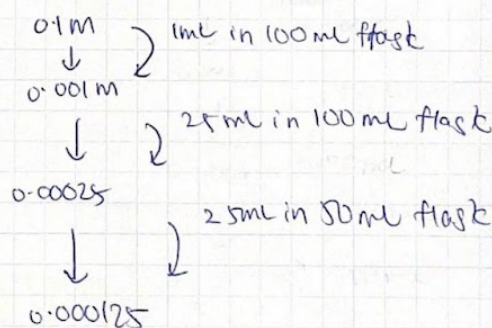 0.1M
1mL in 100mL flask
0.001M
25mL in 100mL flask
0.00025
25mL in 50mL flask
0.000125